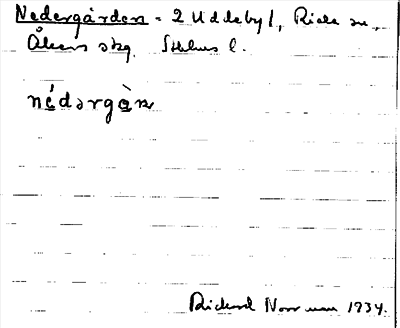 Nedergården = 2 Uddeby 1, Riala sn.,
Åkers skg. Sthlms l.
nédərgàn
Rickard Norrman 1934.